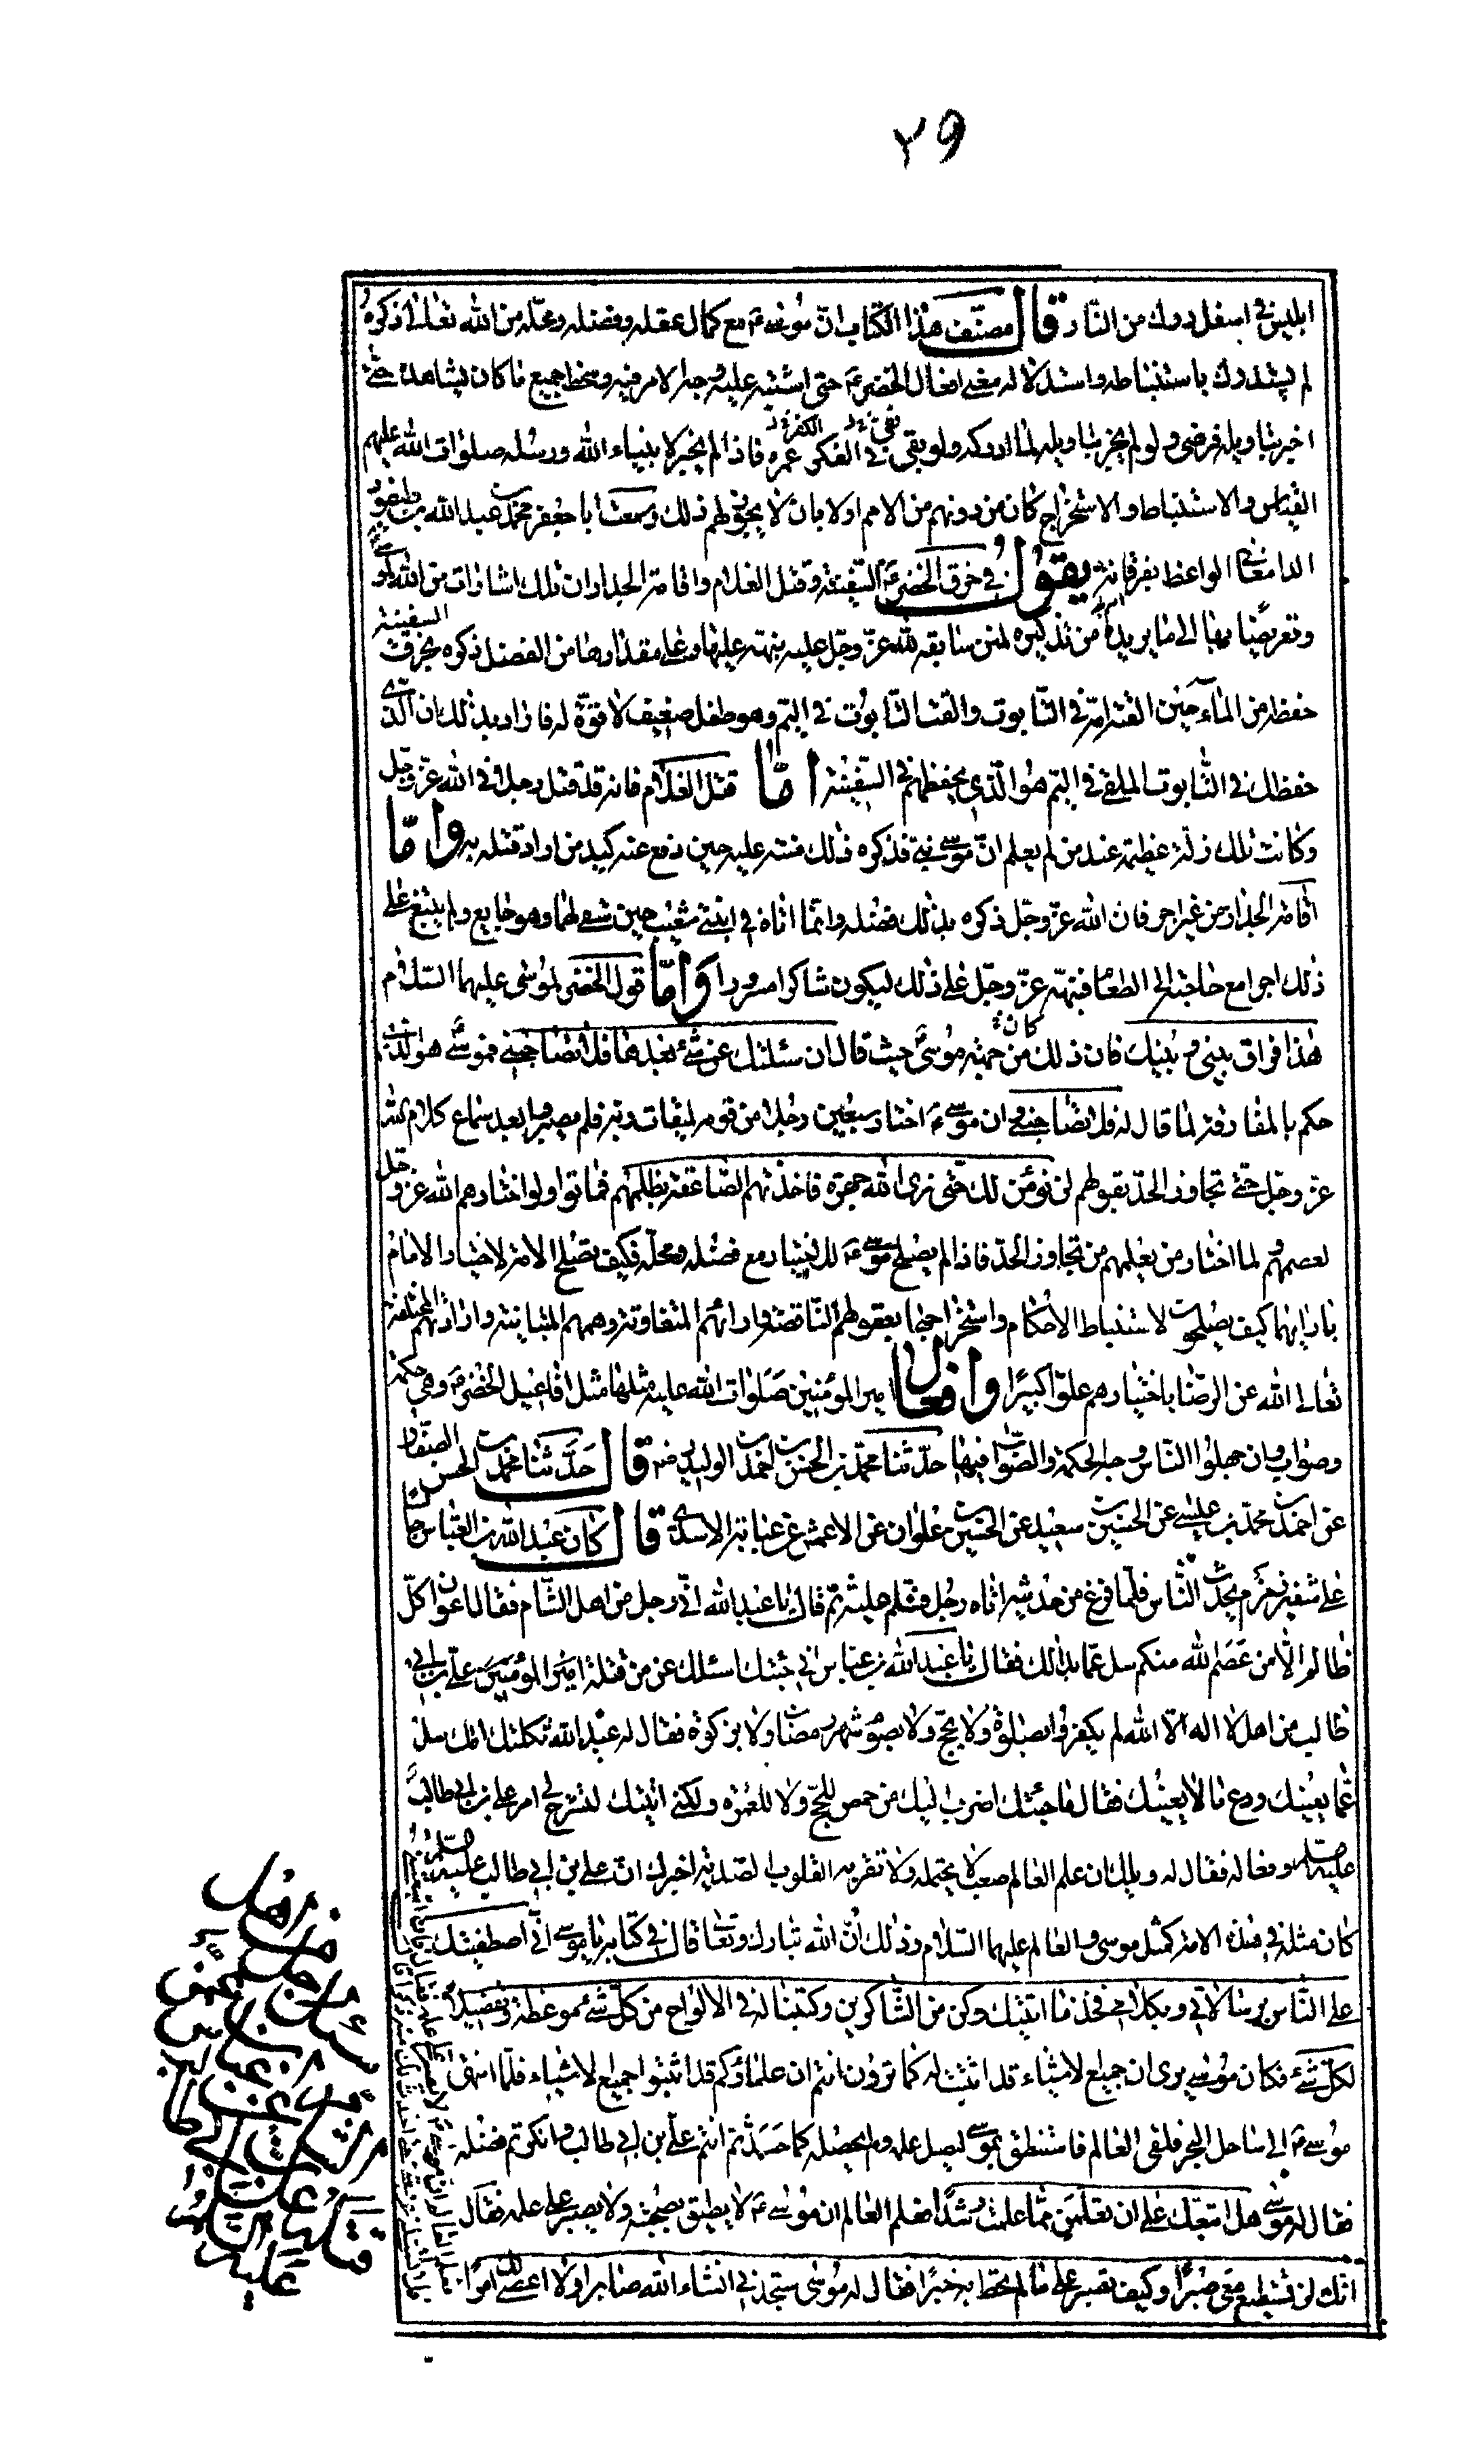 ٢٩
ابليس في اسفل درك من النار قال مصنف هذا الكتاب ان موسى ع مع كمال عقله وفضله ومحله من الله تعالى ذكره
لم يستدرك باستنباطه واستدلاله معنى افعال الخضر ع حتى اشتبه عليه وجه الامر فيه وسخط جميع ما كان يشاهد حتى
اخبر بتاويله فرضى ولو لم يخبر بتاويله لما ادركه ولو بقى في الفكر عمره فاذا لم يجز لانبياء الله ورسله صلوات الله عليهم
القياس والاستنباط والاستخراج كان من دونهم من الامم اولا بان لا يجوز لهم ذلك وسمعت ابا جعفر محمد بن عبد الله بن طيفور
الدامغاني الواعظ بفرغانة يقول في خرق الخضر ع السفينة وقتل الغلام واقامة الجدار ان تلك اشارات من الله لموسى
وتعريضا بها الى ما يريده من تذكيره لمنن سابقة لله عز وجل عليه نبهه عليها وعلى مقدارها من الفضل ذكره بخرق السفينة
حفظه من الماء حين القته امه في التابوت والقت التابوت في اليم وهو طفل ضعيف لا قوة له فاراد بذلك ان الذي
حفظك في التابوت الملقى في اليم هو الذي يحفظهم في السفينة اما قتل الغلام فانه قد قتل رجلا في الله عز وجل
وكانت تلك زلة عظيمة عند من لم يعلم ان موسى نبي فذكره ذلك منته عليه حين دفع عنه كيد من اراد قتله به واما
اقامة الجدار من غير اجر فان الله عز وجل ذكره بذلك فضله وانما اتاه في ابنتي شعيب حين سقى لهما وهو جايع ولم يبتغ على
ذلك اجرا مع حاجته الى الطعام فنبهه عز وجل على ذلك ليكون شاكرا مسرورا واما قول الخضر لموسى عليهما السلام
هذا فراق بيني وبينك فان ذلك كان من جهة موسى حيث قال ان سئلتك عن شيء بعدها فلا تصاحبني فموسى هو الذي
حكم بالمفارقة لما قال له فلا تصاحبني وان موسى ع اختار سبعين رجلا من قومه لميقات ربه فلم يصبروا بعد سماع كلام الله
عز وجل حتى تجاوز الحد بقولهم لن نؤمن لك حتى نرى الله جهرة فاخذتهم الصاعقة بظلمهم فماتوا ولو اختارهم الله عز وجل
لعصمهم ولما اختار من يعلمهم من تجاوز الحد فاذا لم يصلح موسى ع للاختيار مع فضله ومحله فكيف تصلح الامة لاختيار الامام
بارائها كيف يصلحون لاستنباط الاحكام واستخراجها بعقولهم الناقصة وارائهم المتفاوتة وهممهم المتباينة واراداتهم المختلفة
تعالى الله عن الرضا باختيارهم علوا كبيرا وافعال امير المؤمنين صلوات الله عليه مثلها مثل افاعيل الخضر ع وهي حكمة
وصواب وان جهلوا الناس وجه الحكمة والصواب فيها حدثنا محمد بن الحسن بن احمد بن الوليد رض قال حدثنا محمد بن الحسن الصفار
عن احمد بن محمد بن عيسى عن الحسين بن سعيد عن الحسين بن علوان عن الاعمش عن عباية الاسدي قال كان عبد الله بن العباس جالسا
على شفير زمزم يحدث الناس فلما فرغ من حديثه اتاه رجل فسلم عليه ثم قال يا عبد الله اني رجل من اهل الشام فقال اعوان كل
ظالم الا من عصم الله منكم سل عما بدا لك فقال يا عبد الله بن عباس اني جئتك اسئلك عن من قتله امير المؤمنين علي بن ابي
طالب من اهل لا اله الا الله لم يكفروا بصلوة ولا بحج ولا بصوم شهر رمضان ولا بزكوة فقال له عبد الله ثكلتك امك سل
عما يعنيك ودع ما لا يعنيك فقال ما جئتك اضرب اليك من حمص للحج ولا للعمرة ولكني اتيتك لتشرح لي امر علي بن ابي طالب
عليه السلم وفعاله فقال له ويلك ان علم العالم صعب لا يحتمله ولا تقر به القلوب الصدية اخبرك ان علي بن ابي طالب عليه السلم
كان مثله في هذه الامة كمثل موسى والعالم عليهما السلام وذلك ان الله تبارك وتعا قال في كتابه يا موسى اني اصطفيتك
على الناس برسالاتي وبكلامي فخذ ما اتيتك وكن من الشاكرين وكتبنا له في الالواح من كل شيء موعظة وتفصيلا
لكل شيء فكان موسى يرى ان جميع الاشياء قد اثبتت له كما ترون انتم ان علماؤكم قد اثبتوا جميع الاشياء فلما انتهى
موسى ع الى ساحل البحر فلقى العالم فاستنطق بموسى ليصل علمه ولم يحسده كما حسدتم انتم علي بن ابي طالب وانكرتم فضله
فقال له موسى هل اتبعك على ان تعلمن مما علمت رشدا فعلم العالم ان موسى ع لا يطيق بصحبته ولا يصبر على علمه فقال
انك لن تستطيع معي صبرا وكيف تصبر على ما لم تحط به خبرا فقال له موسى ستجدني انشاء الله صابرا ولا اعصي لك امرا